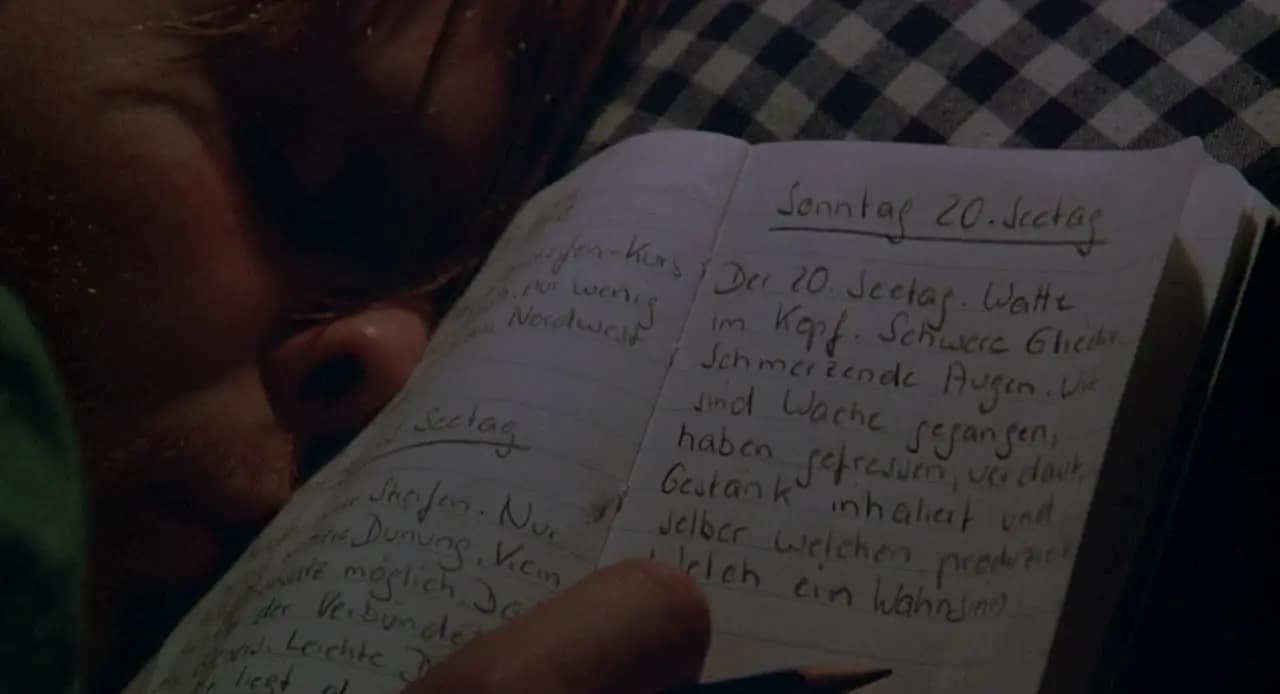 -Kurs
nur wenig
Nordwest
Seetag
Streifen. Nur
Dünung. Vier
möglich. Da
der Verbünde
Leichte
liegt
Sonntag 20. Seetag
Der 20. Seetag. Watte
im Kopf. Schwere Glieder.
Schmerzende Augen. Wir
sind Wache gegangen,
haben gefressen, verdaut,
Gestank inhaliert und
selber welchen produziert
Welch ein Wahnsinn